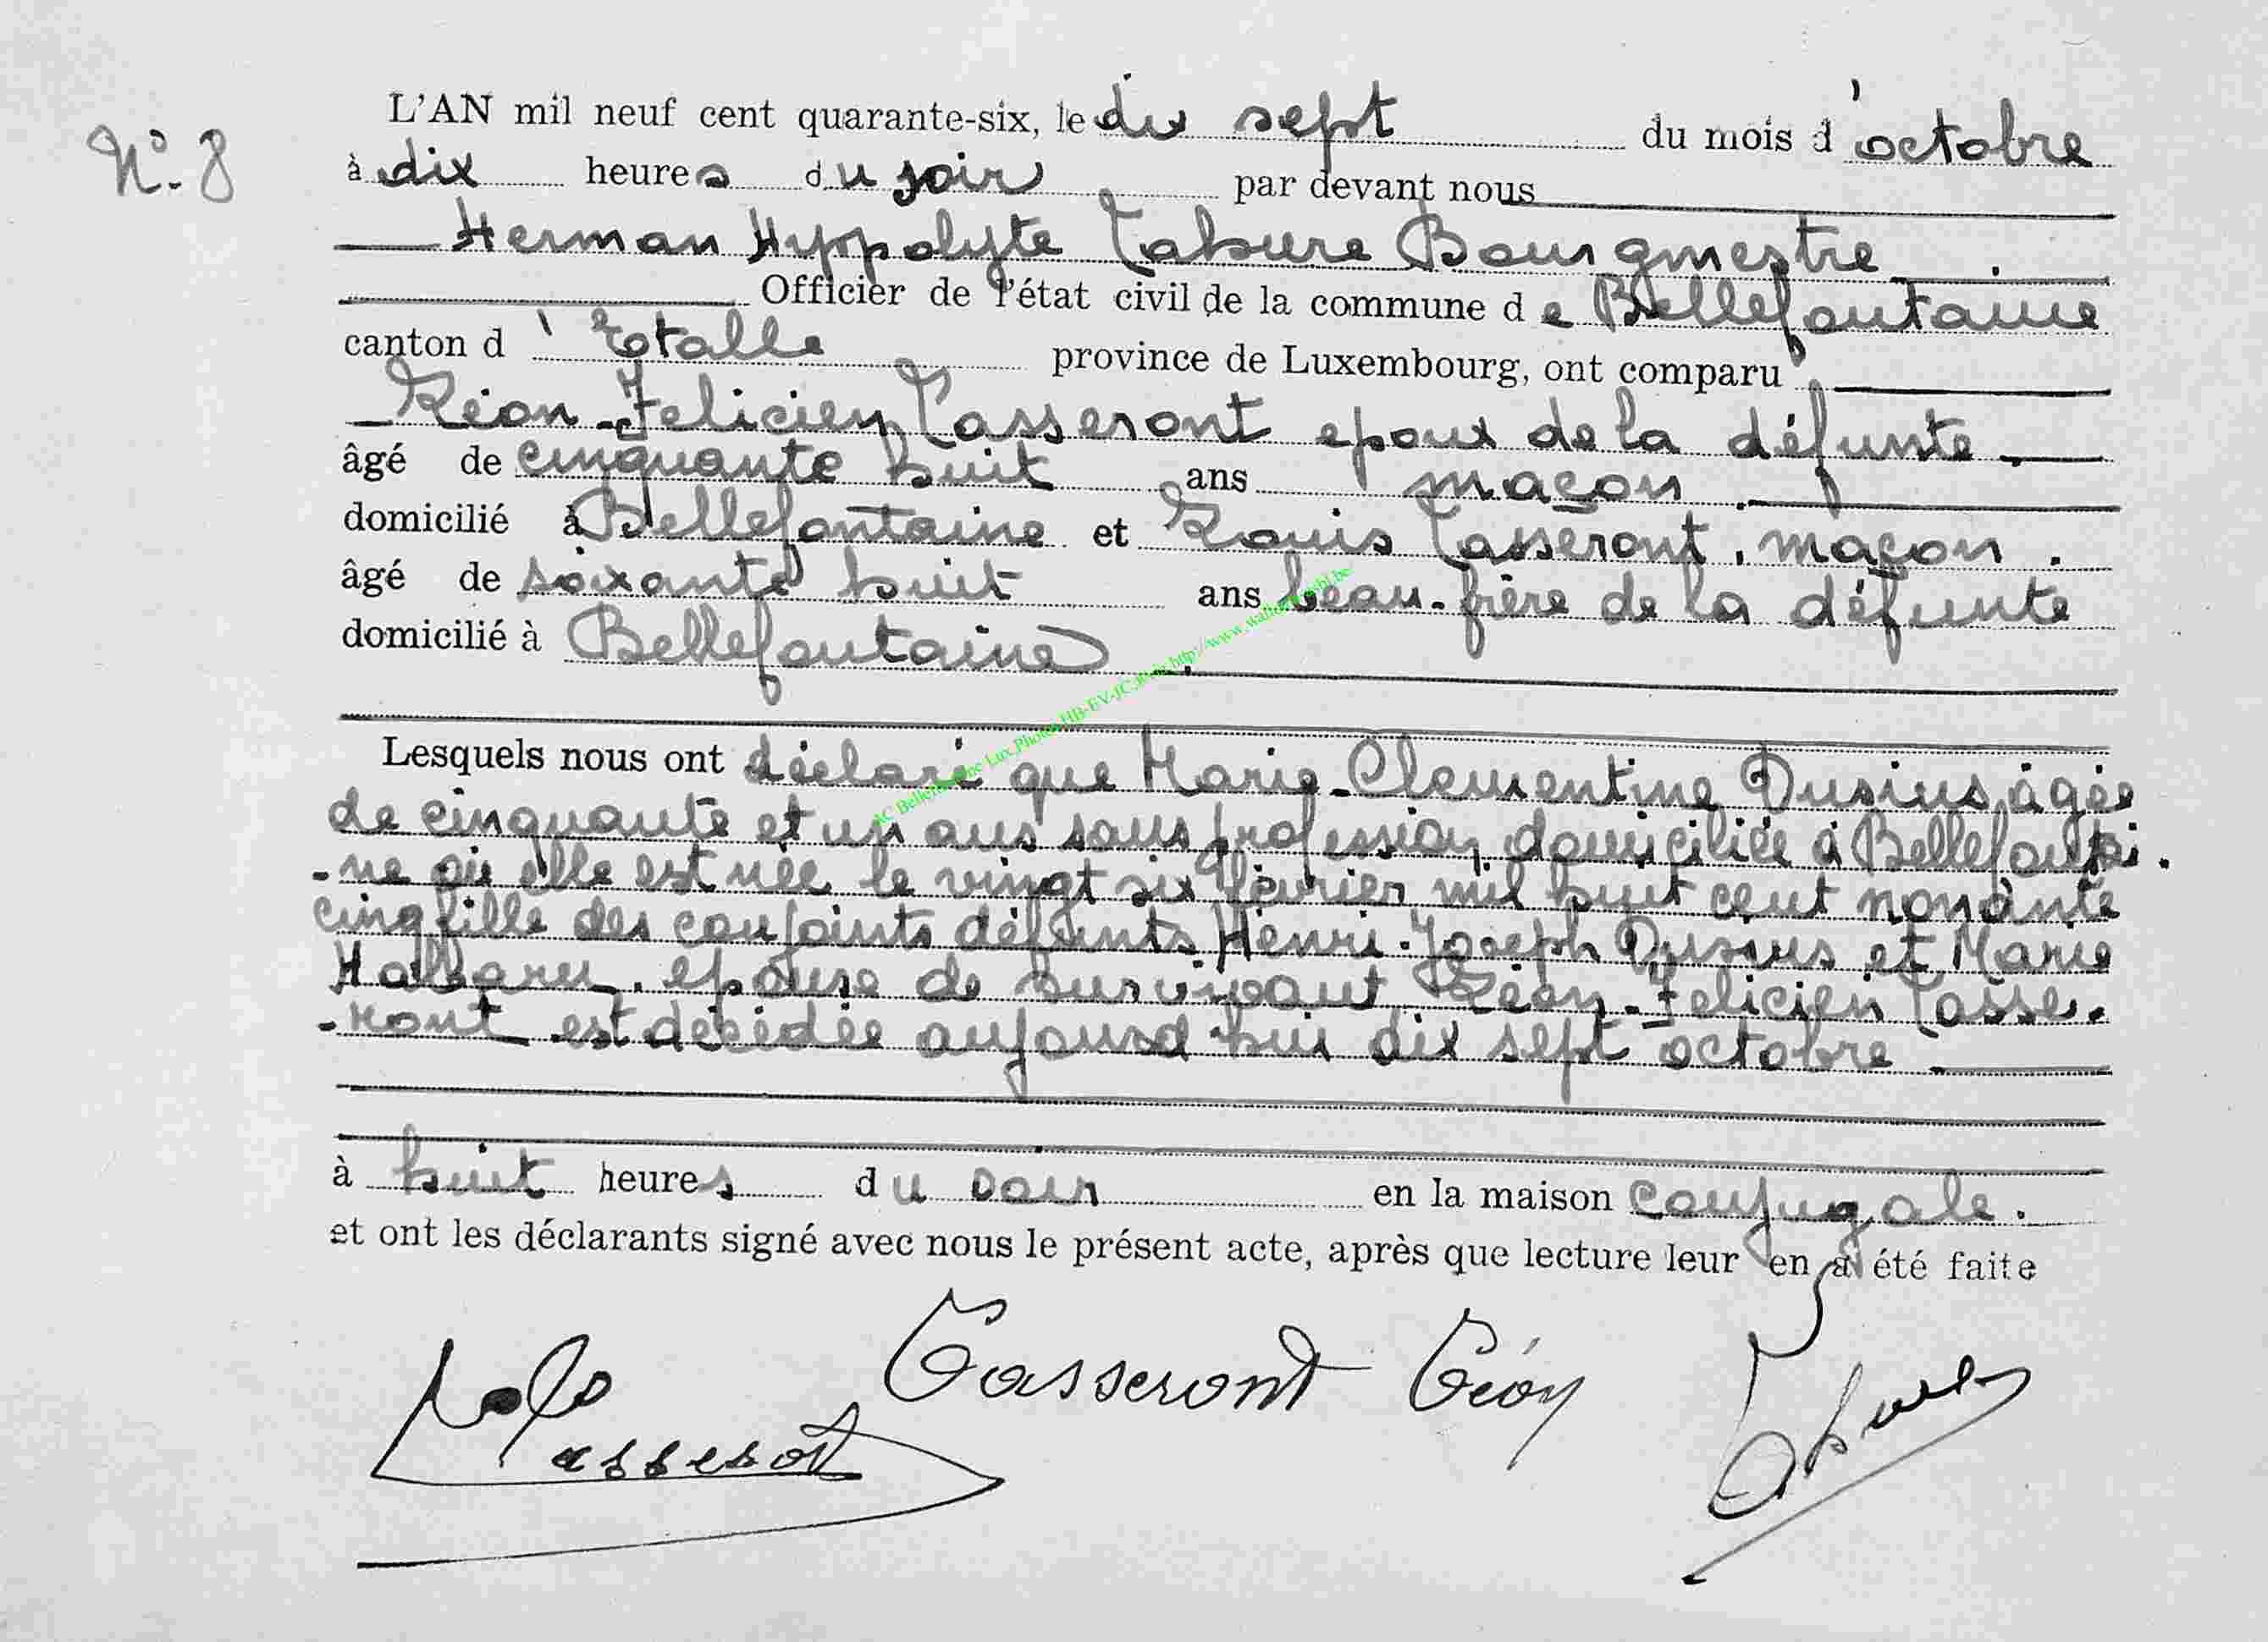 N° 8
L'AN mil neuf cent quarante-six, le dix sept du mois d'octobre
à dix heures du soir par devant nous
Herman Hyppolyte Labure Bourgmestre.
Officier de l'état civil de la commune de Bellefontaine
canton d'Etalle province de Luxembourg, ont comparu
Léon-Felicien Tasseront epoux de la défunte.
âgé de cinquante huit ans maçon.
domicilié à Bellefontaine et Louis Tasseront, maçon.
âgé de soixante huit ans beau-frère de la défunte
domicilié à Bellefontaine.
Lesquels nous ont déclaré que Marie-Clementine Dusius, âgée
de cinquante et un ans sans profession domiciliée à Bellefontai-
-ne où elle est née le vingt six février mil huit cent nonante
cinq fille des conjoints défunts Henri-Joseph Dusius et Marie
epouse de survivant Léon-Felicien Tasse-
-ront est décédée aujourd'hui dix sept octobre.
à huit heures du soir en la maison conjugale.
et ont les déclarants signé avec nous le présent acte, après que lecture leur en a été faite
Tasseront Léon